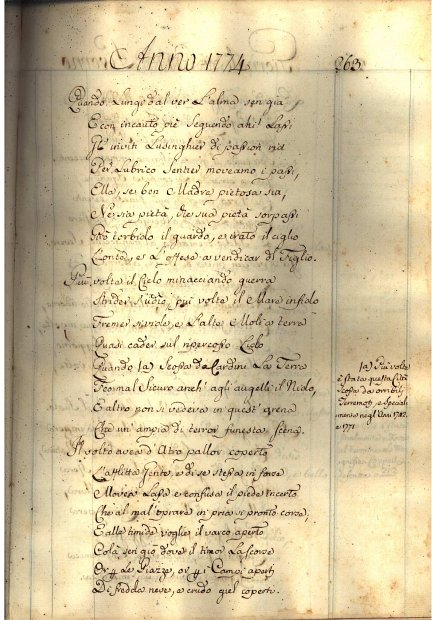 Anno 1774
263
Quando Lungi dal ver L'alma sen gia
E con incauto piè seguendo ahi! Lassi
Gl' inviti Lusinghier di passion ria
Per Lubrico Sentier moveamo i passi,
Ella, se ben Madre pietosa sia,
Nè sia pietà, che sua pietà sorpassi
Giró torbido il guardo, e irato il ciglio
L'onta, e L'offesa a vendicar di Figlio.
Più volte il Cielo minacciando guerra
più volte il Mare infido
Fremer si vide, e L'alte Moli a terra
Quasi cader sul ripercosso Lido
Quando (a) Scossa da Cardini La Terra
Fe' mal Sicuro anch' agli augelli il Nido,
E altro non si vedeva in quest' arena
Che un' ampia di terror funesta scena.
Il volto avea d'Atro pallor coperto
L'afflitta Gente, e di se stessa in forse
Movea Lassa e confusa il piede incerto
Che al mal oprare in pria sì pronto corse,
E alle timide voglie il varco aperto
Colà sen gìo dove il timor La scorse
Or p le Piazze, or p i Campi aperti
Di fredda neve, e crudo giel coperti.
(a) Più volte
è stata questa Città
Scossa da orribili
Terremoti, e special
mente negl' Anni 1742.
e 1771